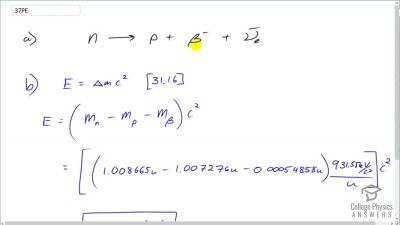 37PE
a) n → p + β⁻ + ν̄ₑ
b) E = Δmc² [31.16]
E = (mₙ - mₚ - mᵦ)c²
= [(1.008665u - 1.007276u - 0.00054858u) 931.5 MeV/c² / u] c²
College Physics
ANSWERS